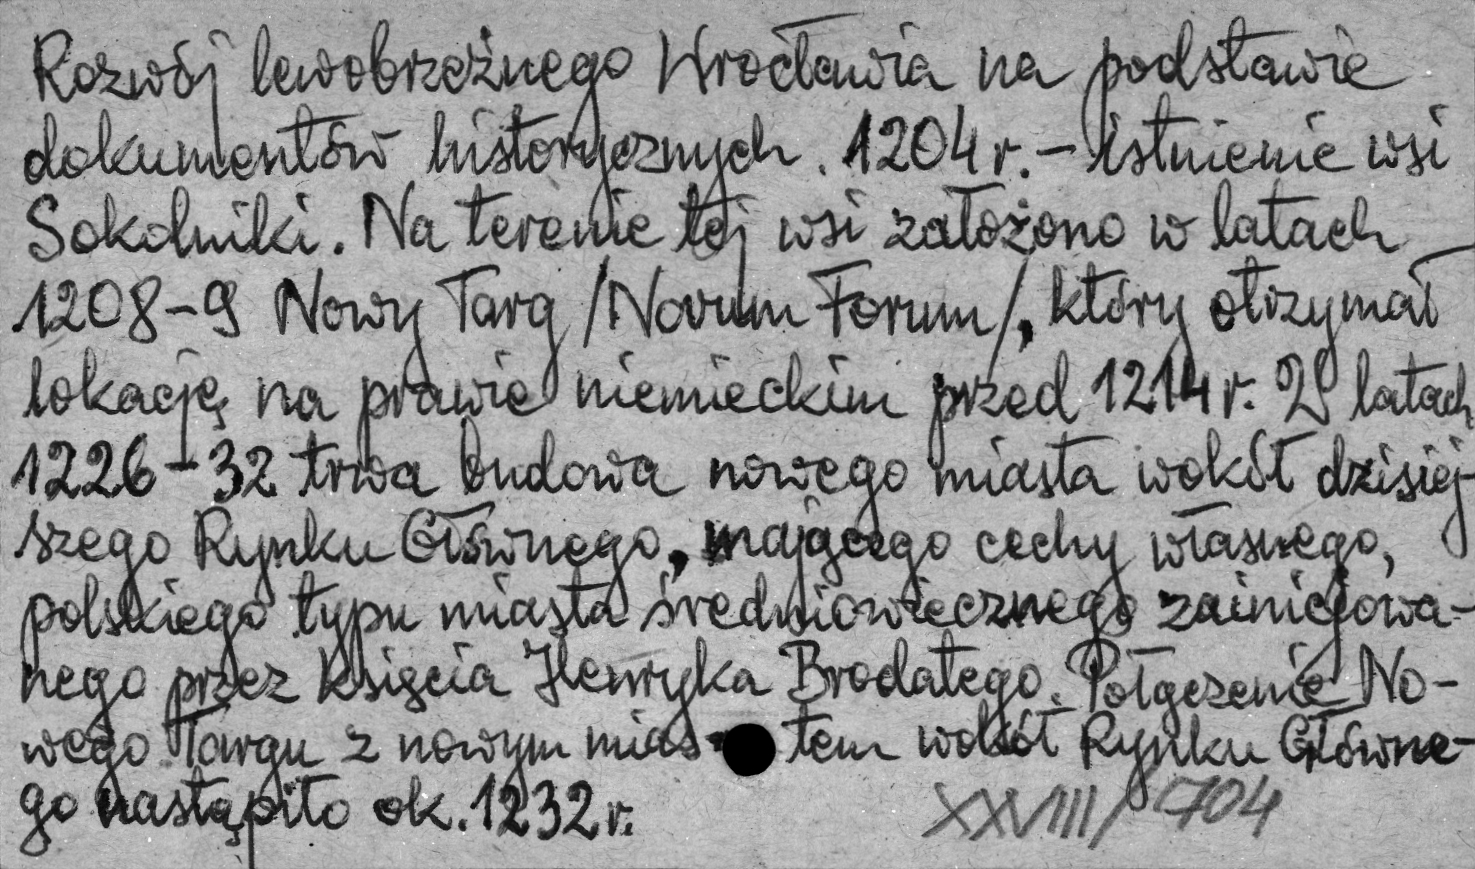 Rozwój lewobrzeżnego Wrocławia na podstawie
dokumentów historycznych. 1204 r. – istnienie wsi
Sokolniki. Na terenie tej wsi założono w latach
1208–9 Nowy Targ /Novum Forum/, który otrzymał
lokację na prawie niemieckim przed 1214 r. W latach
1226–32 trwa budowa nowego miasta wokół dzisiej-
szego Rynku Głównego, mającego cechy własnego,
polskiego typu miasta średniowiecznego zainicjowa-
nego przez księcia Henryka Brodatego. Połączenie No-
wego Targu z nowym mias-tem wokół Rynku Główne-
go nastąpiło ok. 1232 r.
XXVIII/704